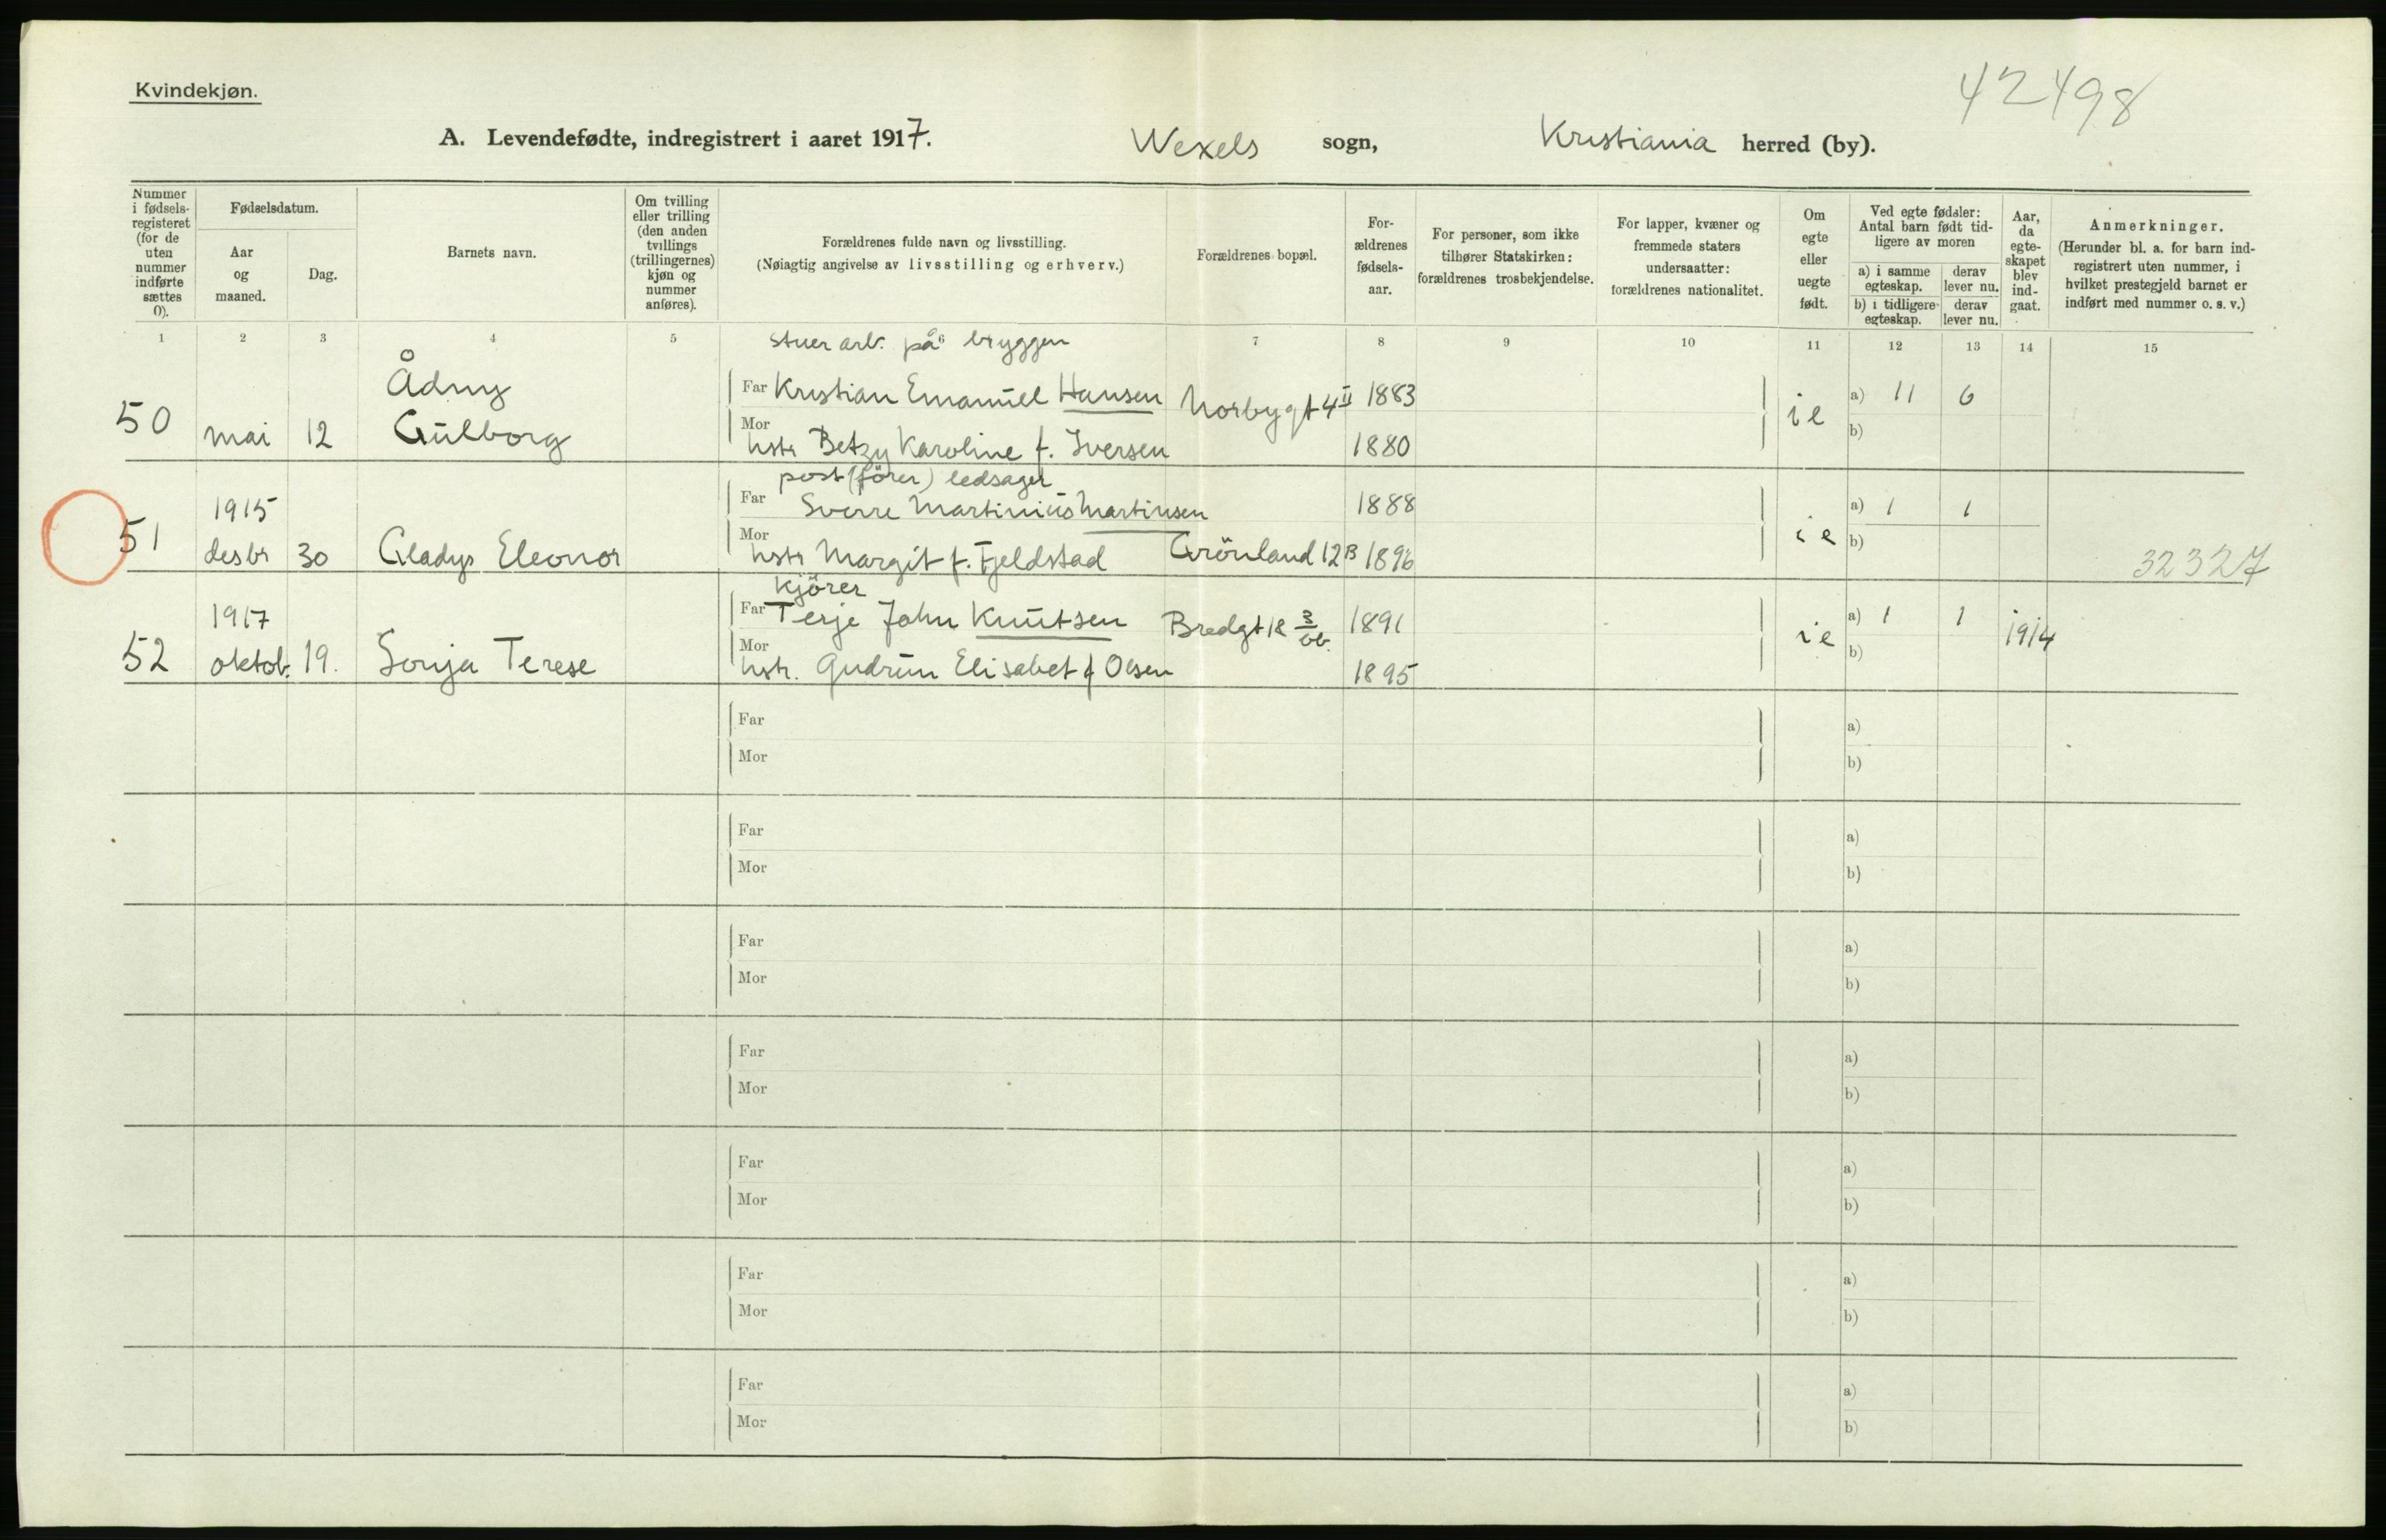 Kvindekjøn.
42498
A. Levendefødte, indregistrert i aaret 1917.
Wexels sogn,
Kristiania herred (by).
Nummer i fødsels-registeret (for de uten nummer indførte sættes 0).
Fødselsdatum.
Aar og maaned.
Dag.
Barnets navn.
Om tvilling eller trilling (den anden tvillings (trillingernes) kjøn og nummer anføres).
Forældrenes fulde navn og livsstilling.
(Nøiagtig angivelse av livsstilling og erhverv.)
Forældrenes bopæl.
For-ældrenes fødsels-aar.
For personer, som ikke tilhører Statskirken: forældrenes trosbekjendelse.
For lapper, kvæner og fremmede staters undersaatter: forældrenes nationalitet.
Om egte eller uegte født.
Ved egte fødsler: Antal barn født tid-ligere av moren
a) i samme egteskap.
derav lever nu.
b) i tidligere egteskap.
derav lever nu.
Aar, da egte-skapet blev ind-gaat.
Anmerkninger.
(Herunder bl. a. for barn ind-registrert uten nummer, i hvilket prestegjeld barnet er indført med nummer o. s. v.)
1 2 3 4 5 6 7 8 9 10 11 12 13 14 15
stuerarb. på bryggen
50 mai 12 Ådny Gulborg
Far Kristian Emanuel Hansen Norbygt 4 II 1883
Mor hstr Betzy Karoline f. Iversen 1880
ie a) 11 6
b)
post (fører) ledsager
51 1915 desbr 30 Gladys Eleonor
Far Sverre Martinius Martinsen 1888
Mor hstr Margit f. Fjeldstad Grönland 12B 1896
ie a) 1 1
b)
32327
Kjörer
52 1917 oktob. 19. Sonja Terese
Far Terje John Knutsen Bredgt 18 3/ob. 1891
Mor hstr. Gudrun Elisabet f Olsen 1895
ie a) 1 1 1914
b)
Far a)
Mor b)
Far a)
Mor b)
Far a)
Mor b)
Far a)
Mor b)
Far a)
Mor b)
Far a)
Mor b)
Far a)
Mor b)